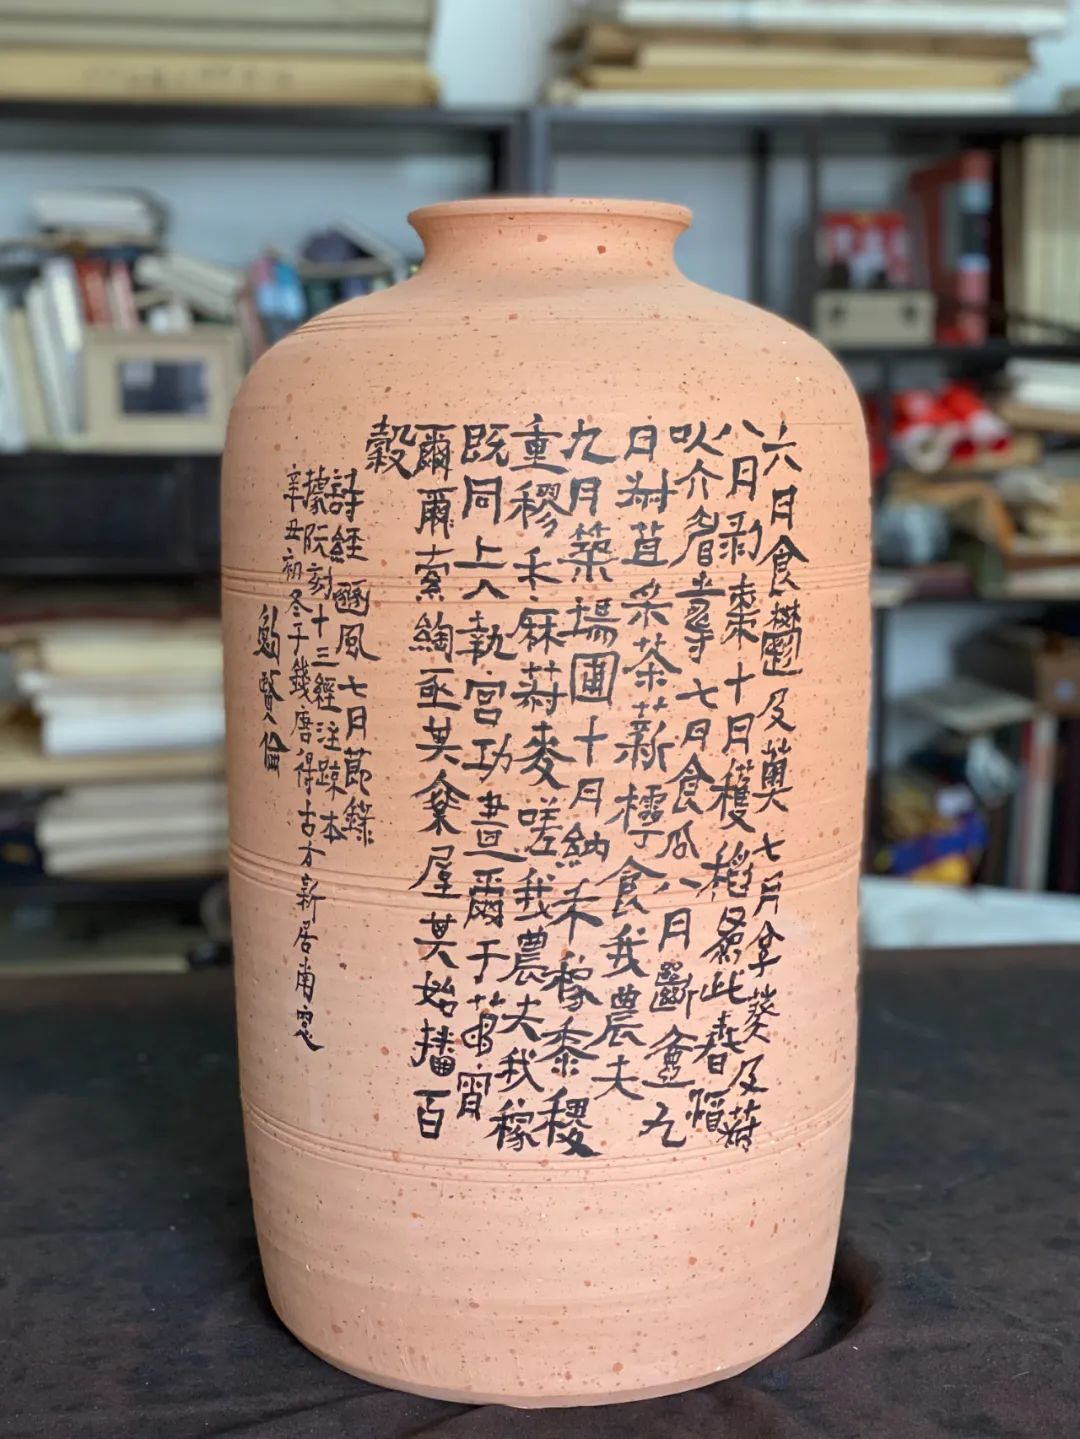 六月食鬱及薁七月亨葵及菽
八月剥棗十月穫稻為此春酒
以介眉壽七月食瓜八月斷壺九
月菽苴采荼薪樗食我農夫
九月築場圃十月納禾稼黍稷
重穋禾麻菽麥嗟我農夫我稼
既同上入執宮功晝爾于茅宵
爾爾索綯亟其乗屋其始播百
穀
詩經豳風七月節錄
據阮刻十三經注疏本
辛丑初冬于錢唐得古方新居南窗
賢倫